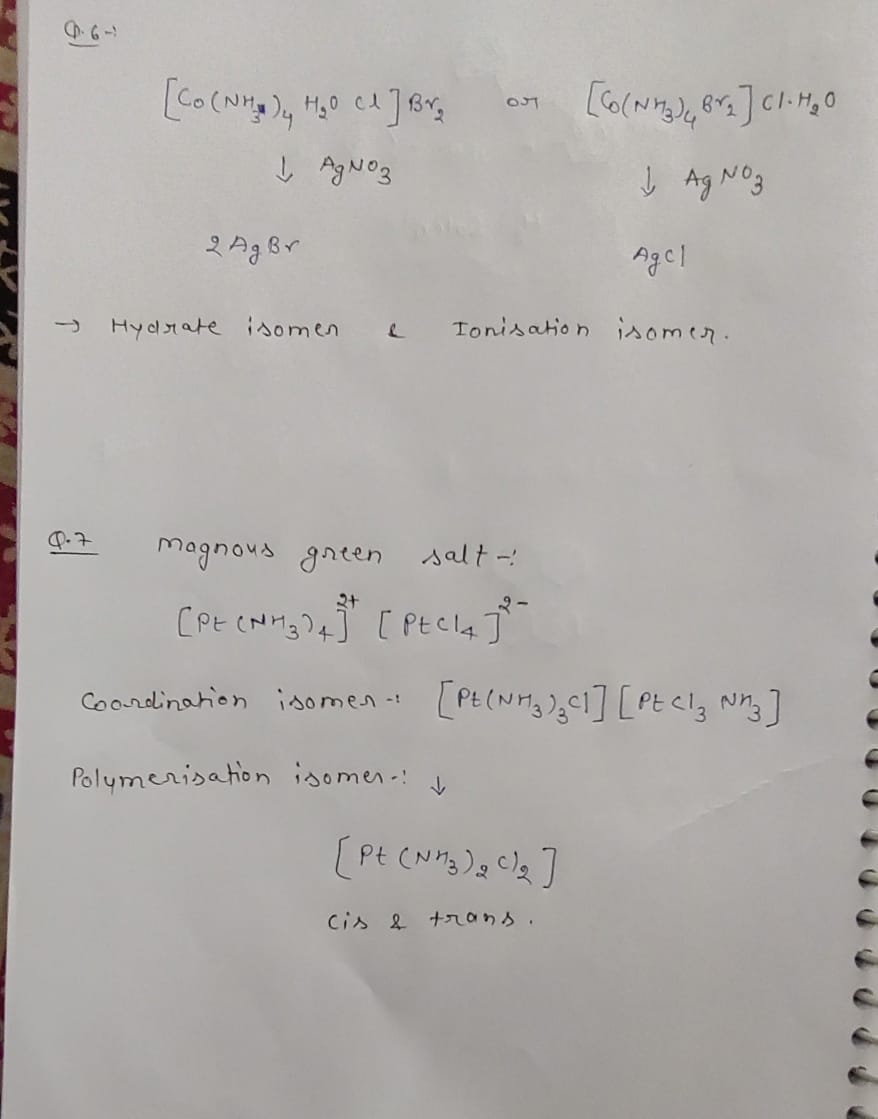 Q.6-:
[Co(NH3)4 H2O Cl]Br2 or [Co(NH3)4 Br2]Cl.H2O
↓ AgNO3 ↓ AgNO3
2AgBr AgCl
→ Hydrate isomer & Ionisation isomer.
Q.7 Magnous green salt -:
[Pt(NH3)4]2+ [PtCl4]2-
Coordination isomer -: [Pt(NH3)3Cl][PtCl3 NH3]
Polymerisation isomer -: ↓
[Pt(NH3)2Cl2]
Cis & trans.